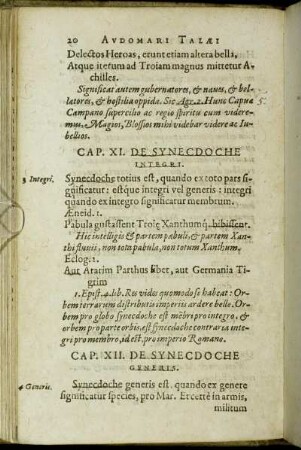 20 AVDOMARI TALÆI
Delectos Heroas, erunt etiam altera bella,
Atque iterum ad Troiam magnus mittetur A-
chilles.
Significat autem gubernatores, & naues, & bel-
latores, & hostilia oppida. Sic Agr. 2. Hunc Capuæ
Campano supercilio ac regio spiritu cum videre-
mus, Magios, Blossios mihi videbar videre ac Iu-
bellios.
5
CAP. XI. DE SYNECDOCHE
INTEGRI.
3 Integri.
Synecdoche totius est, quando ex toto pars si-
gnificatur: estque integri vel generis: integri
quando ex integro significatur membrum.
Æneid. 1.
Pabula gustassent Troię Xanthumq́; bibissent.
Hic intelligis & partem pabuli, & partem Xan-
thi fluuij, non tota pabula, non totum Xanthum.
Eclog. 1.
Aut Ararim Parthus bibet, aut Germania Ti-
grim
1. Epist. 4. lib. Res vides quomodo se habeat: Or-
bem terrarum distributis imperiis ardere bello. Or-
bem pro globo synecdoche est mēbri pro integro, &
orbem pro parte orbis, est synecdoche contraria inte-
gri pro membro, id est, pro imperio Romano.
CAP. XII. DE SYNECDOCHE
GENERIS.
4 Generis.
Synecdoche generis est, quando ex genere
significatur species, pro Mar. Et certè in armis,
militum